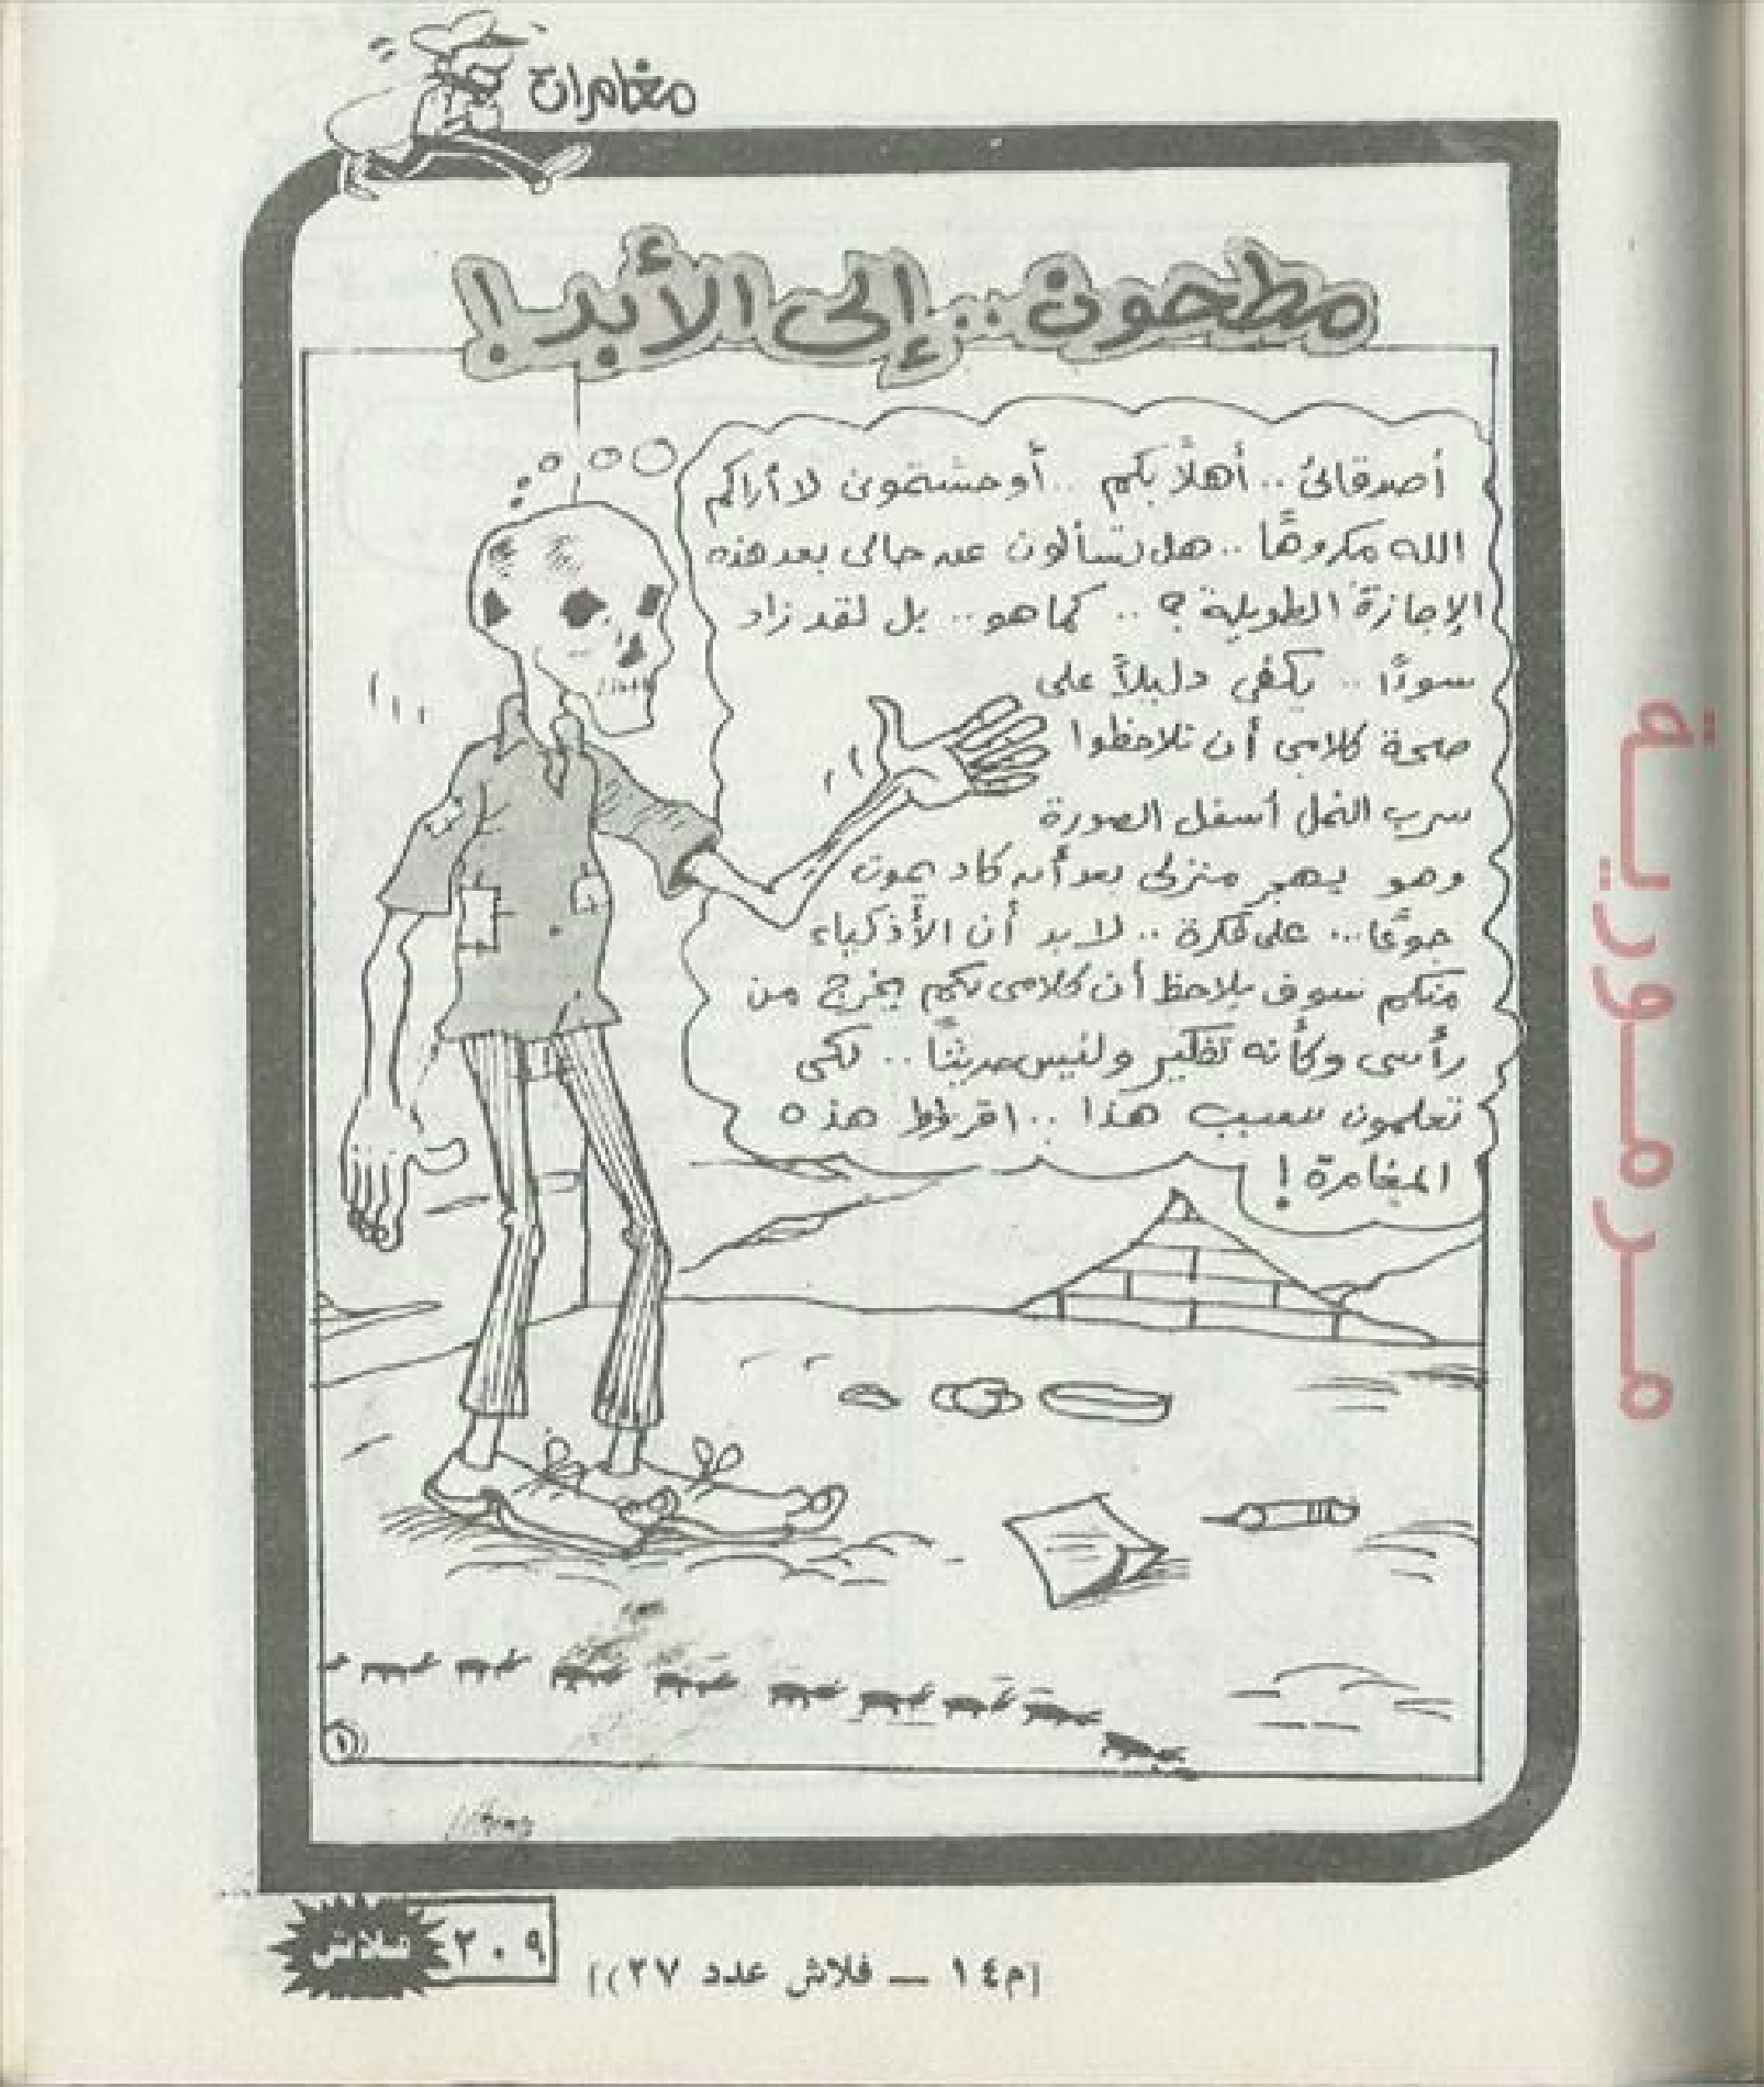 مغامرات
مطحون .. إلى الأبد !
أصدقائى .. أهلاً بكم .. أوحشتمونى لا أراكم
الله مكروهًا .. هل تسألون عن حالى بعد هذه
الإجازة الطويلة ؟ .. كما هو .. بل لقد زاد
سوءًا .. يكفى دليلاً على
صحة كلامى أن تلاحظوا
سرب النمل أسفل الصورة
وهو يهجر منزلى بعد أن كاد يموت
جوعًا ... على فكرة .. لابد أن الأذكياء
منكم سوف يلاحظ أن كلامى لكم يخرج من
رأسى وكأنه تفكير وليس حديثًا .. لكى
تعلمون سبب هذا .. اقرءوا هذه
المغامرة !
١
فلاش ٢٠٩
[م١٤ — فلاش عدد ٢٧)]
مرمورية